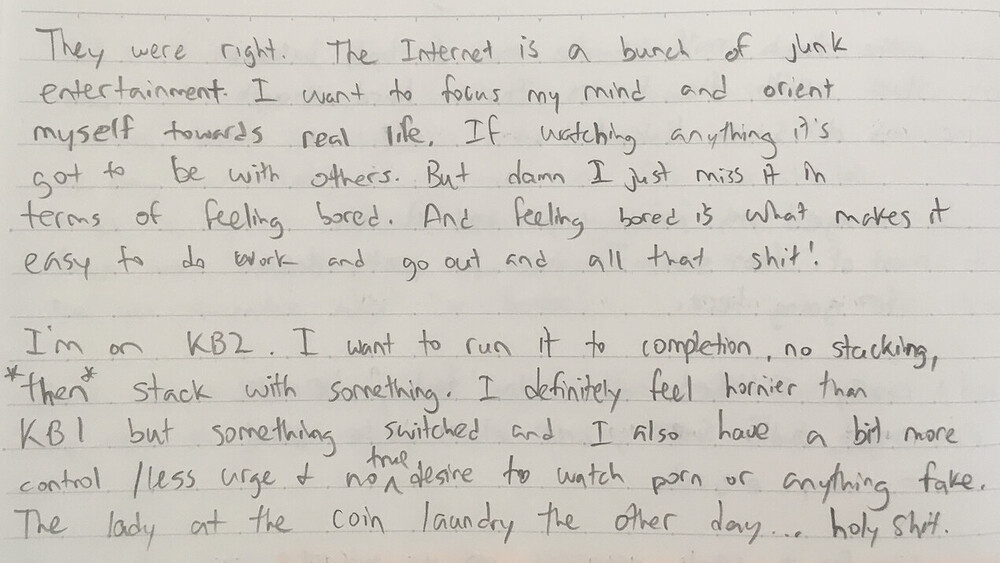 They were right. The Internet is a bunch of junk
entertainment. I want to focus my mind and orient
myself towards real life. If watching anything it's
got to be with others. But damn I just miss it in
terms of feeling bored. And feeling bored is what makes it
easy to do work and go out and all that shit!
I'm on KB2. I want to run it to completion, no stacking,
*then* stack with something. I definitely feel hornier than
KB1 but something switched and I also have a bit more
control /less urge & no true desire to watch porn or anything fake.
The lady at the coin laundry the other day... holy shit.